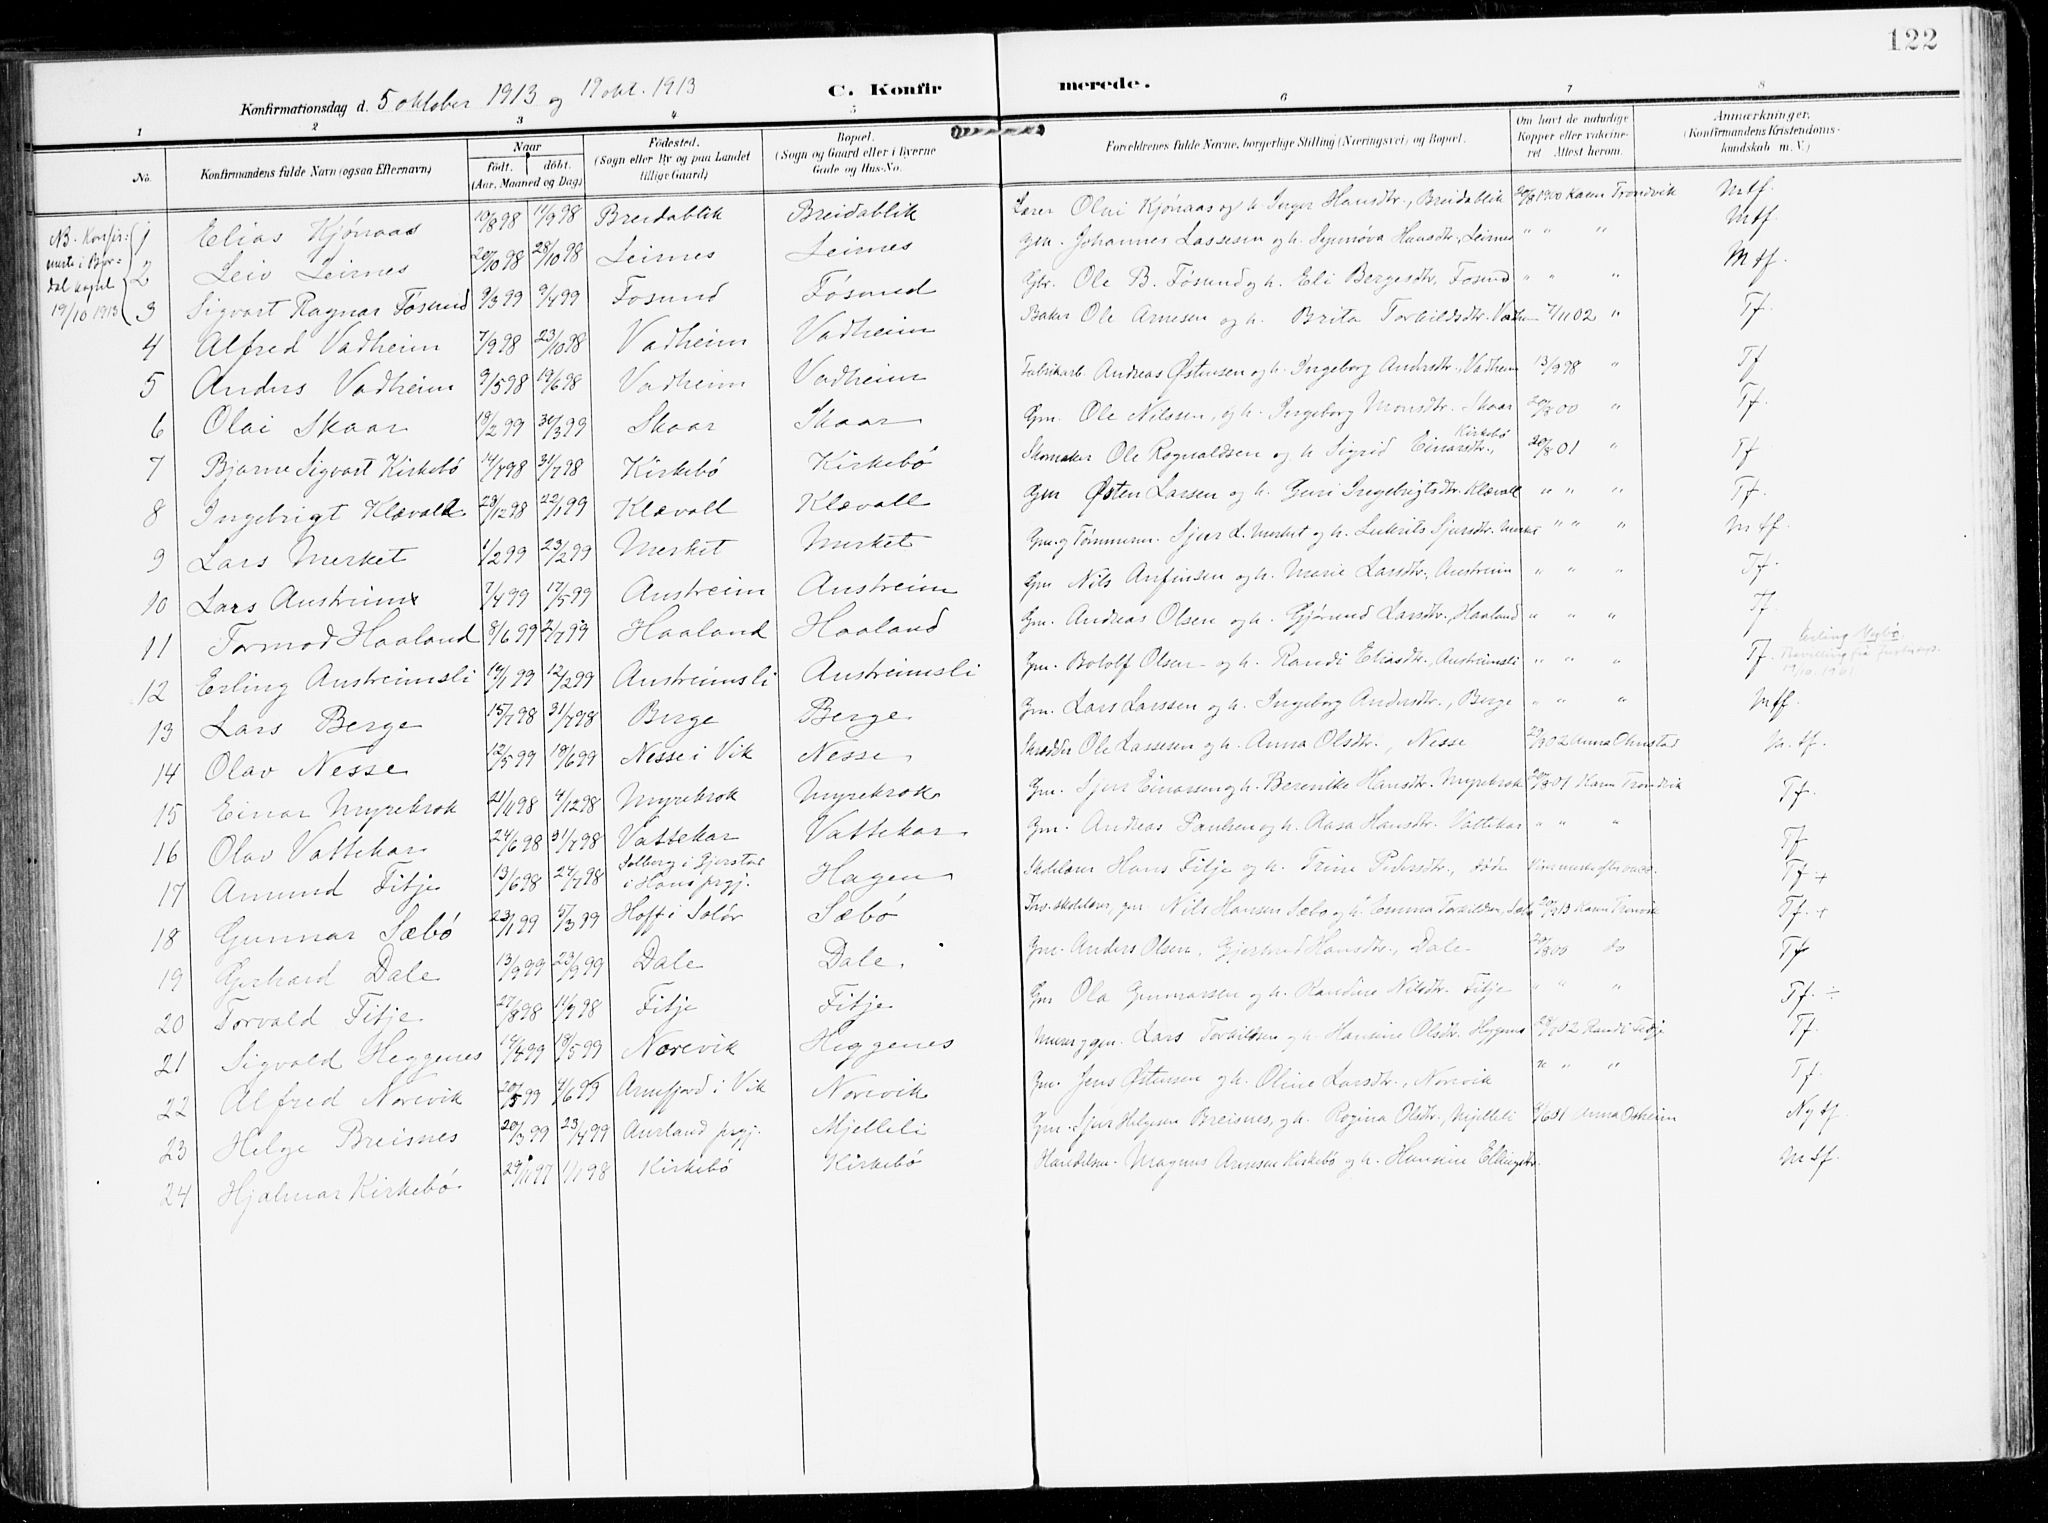 122
Konfirmationsdag d. 5 oktober 1913 og 19 okt. 1913
C. Konfirmerede.
1 2 3 4 5 6 7 8
No. Konfirmandens fulde Navn (ogsaa Efternavn) Naar födt. döbt. (Aar, Maaned og Dag) Födested. (Sogn eller By og paa Landet tillige Gaard) Bopæl. (Sogn og Gaard eller i Byerne Gade og Hus-No. Forældrenes fulde Navne, borgerlige Stilling (Næringsvei) og Bopæl. Om havt de naturlige Kopper eller vakcineret Attest herom. Anmærkninger, (Konfirmandens Kristendomskundskab m. V.)
NB. Konfirmerte i kapel 19/10 1913
1 Elias Kjönaas 10/8 98 11/9 98 Breidablik Breidablik Lærer Olai Kjönaas og h. Inger Hansdtr., Breidablik 20/8 1900 Karen Trondvik Mtf.
2 Leiv Leirnes 20/10 98 28/10 98 Leirnes Leirnes Gm. Johannes Lassesen og h. Synnöva Hansdtr., Leirnes " " " Mtf.
3 Sigvart Ragnar Fösund 9/3 99 9/4 99 Fosund Fösund Gbr. Ole B. Fösund og h. Eli Bergesdtr, Fosund " " " Mtf.
4 Alfred Vadheim 7/9 98 23/10 98 Vadheim Vadheim Baker Ole Arnesen og h. Brita Torkildsdtr. 7/11 02 " Tf.
5 Anders Vadheim 9/5 98 19/6 98 Vadheim Vadheim Fabrikarb Andreas Østensen og h. Ingeborg Andersdtr., Vadheim 13/9 98 " Tf
6 Olai Skaar 18/2 99 30/3 99 Skaar Skaar Gm. Ole Nilssen, og h. Ingeborg Monsdtr. Skaar 20/8 00 " Tf.
7 Bjarne Sigvart Kirkebö 14/7 98 31/7 98 Kirkebö Kirkebö Skomaker Ole Rognaldsen og h Sigrid Einarsdtr., Kirkebö 20/8 01 " Tf
8 Ingebrigt Klævold 23/12 98 22/1 99 Klævoll Klævoll Gm Østen Larsen og h. Guri Ingebrigtsdtr. Klævoll " " " Tf.
9 Lars Merket 1/2 99 23/2 99 Merket Merket Gm. og Tömmerm. Sjur L. Merket og h. Sjursdtr. Merket " " " Mtf.
10 Lars Austreim 7/4 99 17/5 99 Austreim Austreim Gm Nils Anfinsen og h. Marie Larsdtr., Austreim " " " Tf.
11 Tormod Haaland 8/6 99 2/7 99 Haaland Haaland Gm. Andreas Olsen og h. Gjörund Larsdtr. Haaland " " " Tf.
12 Erling Austreimsli 14/1 99 12/2 99 Austreimsli Austreimsli Gm. Botolf Olsen og h. Randi Eliasdtr., Austreimsli " " " Tf. Erling
13 Lars Berge 15/7 98 31/7 98 Berge Berge Gm. Lars Larssen og h. Ingeborg Andersdtr., Berge " " " Mtf.
14 Olav Nesse 12/5 99 18/6 99 Nesse i Vik Nesse Skrædder Ole Lassesen og h. Anna Olsdtr., Nesse Anna Ohnstad M. tf.
15 Einar Myrebrok 21/11 98 4/12 98 Myrebrok Myrebrok Gm. Sjur Einarsen og h. Berenike Hansdtr. Myrebrok 20/8 01 Karen Trondvik Tf.
16 Olav Vattekar 24/6 98 31/7 98 Vattekar Vattekar Gm. Andreas Paulsen og h. Aasa Hansdtr. Vattekar " " " Tf
17 Amund Fitje 13/6 98 24/7 98 Solberg i Gjerstad i Hans prgj. Hagen Skolelærer Hans Fitje og h. Trine Pedersdtr., döde Tf. +
18 Gunnar Sæbö 23/1 99 5/3 99 Hoff i Solör Sæbö Nils Hansen Sæbo og h. Emma Torkildsen, Tf. +
19 Gerhard Dale 13/9 99 23/9 99 Dale Dale Gm. Anders Olsen, Gjertrud Hansdtr., Dale 20/8 00 do Tf
20 Torvald Fitje 27/8 98 14/9 98 Fitje Fitje Gm Ola Gunnarsen og h. Randine Nilsdtr. Fitje " " " Tf. ÷
21 Sigvald Heggenes 14/4 99 18/5 99 Norevik Heggenes Murer og gm. Lars Torkildsen og h. Hansine Olsdtr. Randi Fitje Tf.
22 Alfred Norevik 20/5 99 4/6 99 Arnefjord i Vik Norevik Gm. Jens Östensen og h. Oline Larsdtr., Norevik " " " Tf.
23 Helge Breisnes 20/3 99 23/4 99 Aurland prgj. Mjelleli Gm. Sjur Helgesen Breisnes, og h. Regina Olsdtr., Mjelleli Anna Osheim Ng tf.
24 Hjalmar Kirkebö 29/11 97 1/1 98 Kirkebö Kirkebö Handelsm. Magnus Arnesen Kirkebö og h. Hansine Ellingsdtr. Mtf.